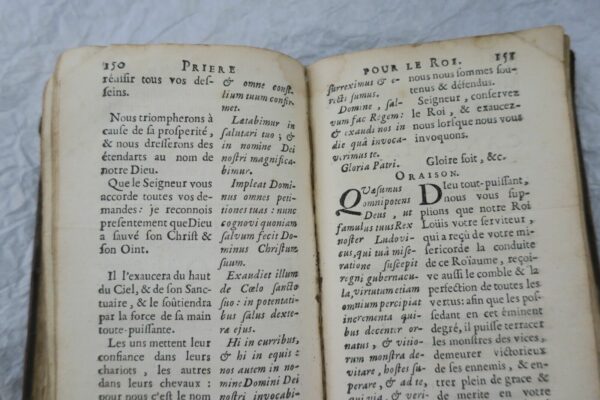 150 PRIERE
réussir tous vos des-
seins.
Nous triompherons à
cause de sa prosperité,
& nous dresserons des
étendarts au nom de
notre Dieu.
Que le Seigneur vous
accorde toutes vos de-
mandes: je reconnois
presentement que Dieu
a sauvé son Christ &
son Oint.
Il l'exaucera du haut
du Ciel, & de son Sanc-
tuaire, & le soûtiendra
par la force de sa main
toute-puissante.
Les uns mettent leur
confiance dans leurs
chariots, les autres
dans leurs chevaux:
pour nous c'est le nom
& omne consi-
lium tuum confir-
met.
Lætabimur in
salutari tuo; &
in nomine Dei
nostri magnifica-
bimur.
Impleat Domi-
nus omnes peti-
tiones tuas: nunc
cognovi quoniam
salvum fecit Do-
minus Christum
suum.
Exaudiet illum
de Cœlo sancto
suo: in potentati-
bus salus dexte-
ræ ejus.
Hi in curribus,
& hi in equis:
nos autem in no-
mine Domini Dei
nostri invocabi-
POUR LE ROI. 151
surreximus & e-
recti sumus.
Domine, sal-
vum fac Regem:
& exaudi nos in
die quâ invoca-
verimus te.
Gloria Patri.
nous nous sommes soû-
tenus & défendus.
Seigneur, conservez
le Roi, & exaucez-
nous lorsque nous vous
invoquons.
Gloire soit, &c.
ORAISON.
QUæsumus
omnipotens
Deus, ut
famulus tuus Rex
noster Ludovi-
cus, qui tuâ mise-
ratione suscepit
regni gubernacu-
la, virtutum etiam
omnium percipiat
incrementa qui-
bus decenter or-
natus, & vitio-
rum monstra de-
vitare, hostes su-
perare, & ad te,
qui via, & veri-
DIeu tout-puissant,
nous vous sup-
plions que notre Roi
Loüis votre serviteur,
qui a reçu de votre mi-
sericorde la conduite
de ce Roïaume, reçoi-
ve aussi le comble & la
perfection de toutes les
vertus: afin que les pos-
sedant en cet éminent
degré, il puisse terracer
les monstres des vices,
demeurer victorieux
de ses ennemis, & en-
trer plein de grace &
de merite en votre